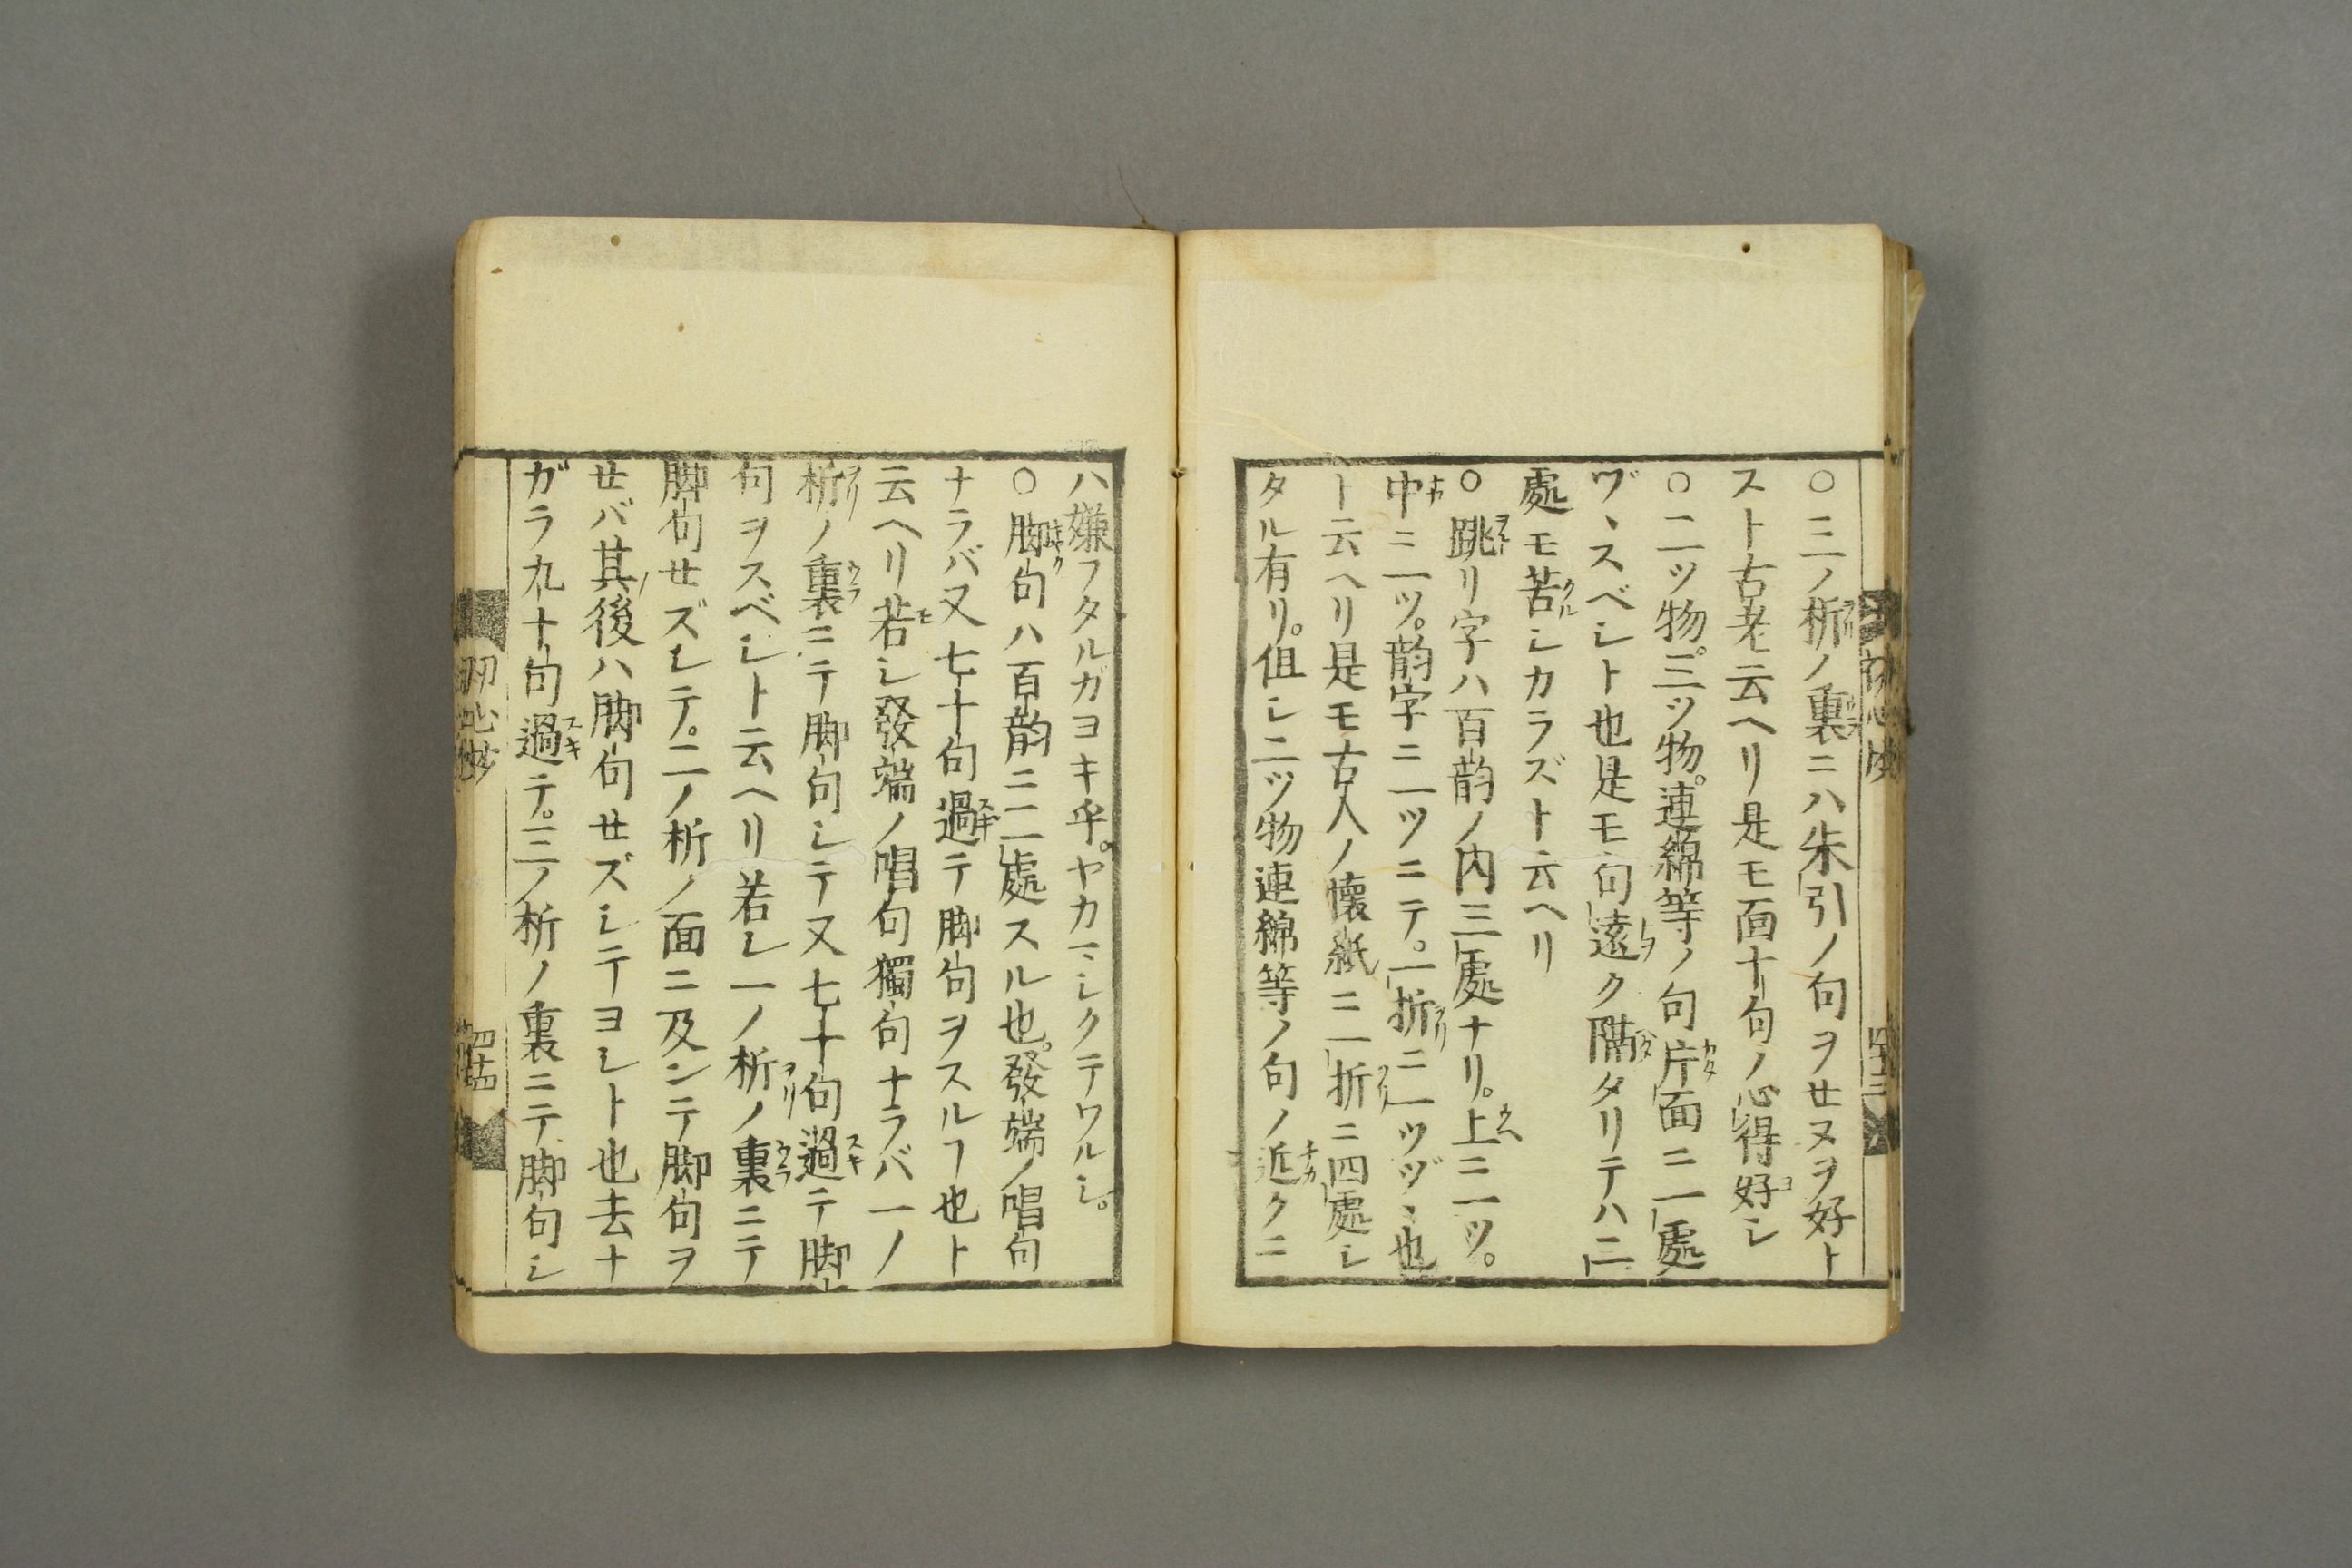 ○三ノ折ノ裏ニハ朱引ノ句ヲセヌヲ好ト
スト古老云ヘリ是モ面十句ノ心得好シ
○二ツ物。三ツ物。連綿等ノ句片面ニ一處
ヅヽスベシト也是モ句遠ク隔タリテハ二
處モ苦シカラズト云ヘリ
○跳リ字ハ百韵ノ内三處ナリ。上ニ一ツ。
中ニ一ツ。韵字ニ一ツニテ。一折ニ一ツヅヽ也
ト云ヘリ是モ古人ノ懐紙ニ一折ニ四處シ
タル有リ。但シ二ツ物連綿等ノ句ノ近クニ
ハ嫌フタルガヨキ㕝。ヤカマシクテワルシ。
○脚句ハ百韵ニ二處スル也。發端ノ唱句
ナラバ又七十句過テ脚句ヲスルヿ也ト
云ヘリ若シ發端ノ唱句獨句ナラバ一ノ
折ノ裏ニテ脚句シテ又七十句過テ脚
句ヲスベシト云ヘリ若シ一ノ折ノ裏ニテ
脚句セズシテ。二ノ折ノ面ニ及ンテ脚句ヲ
セバ其後ハ脚句セズシテヨシト也去ナ
ガラ九十句過テ。三ノ折ノ裏ニテ脚句シ